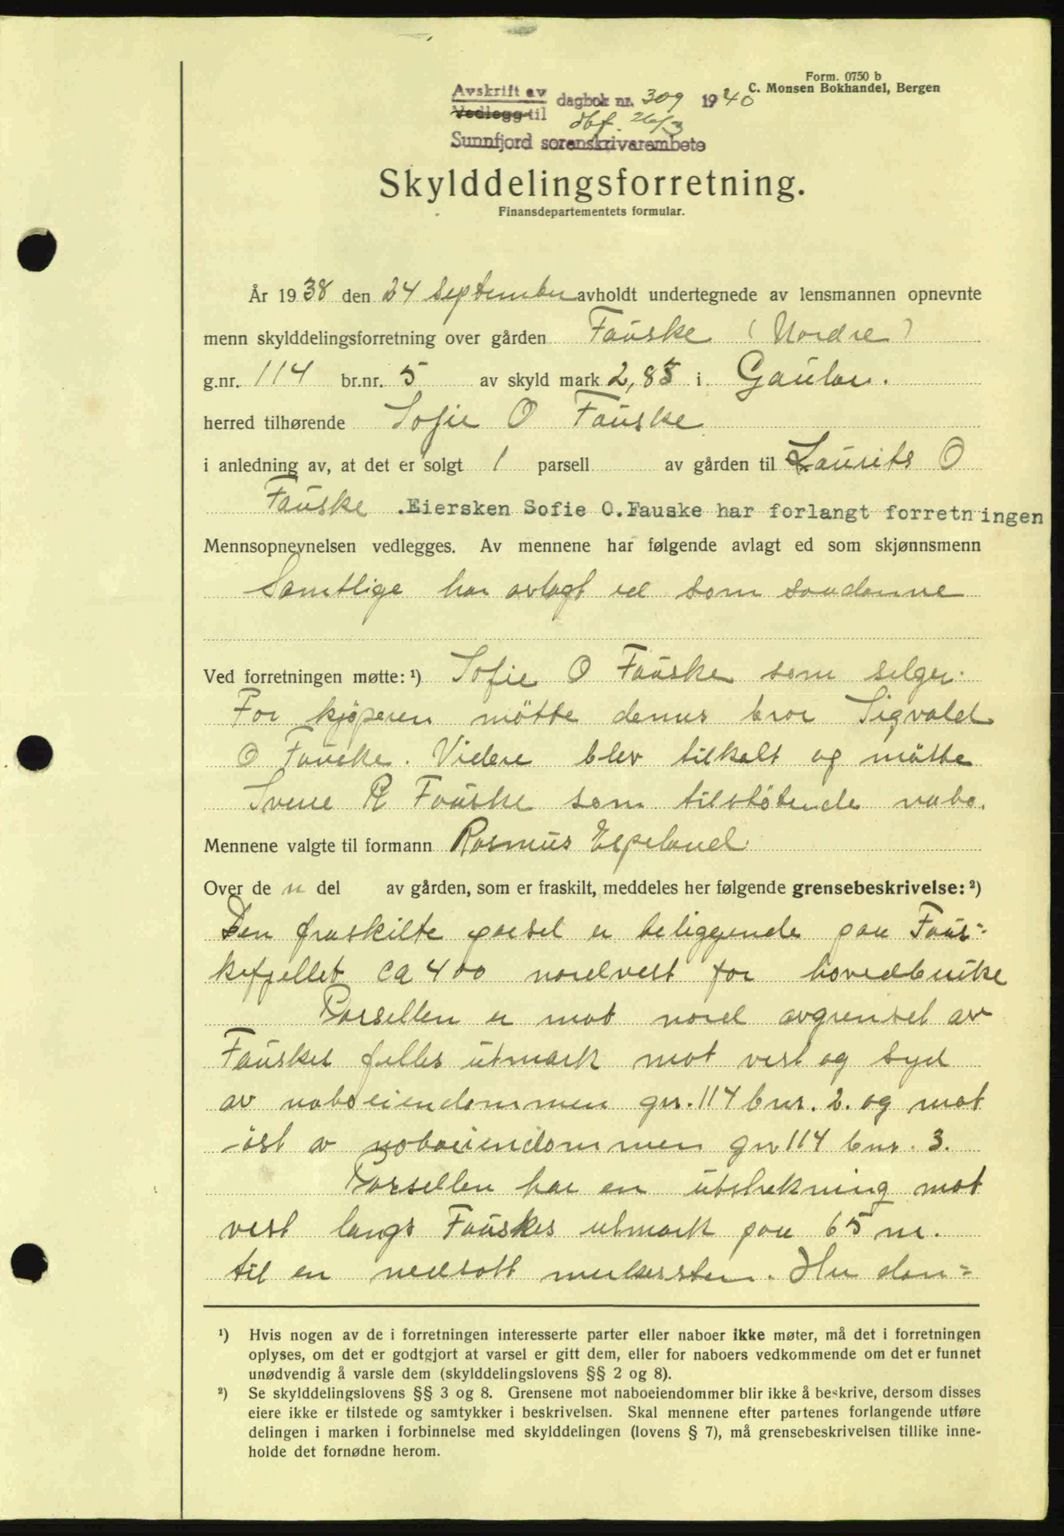 Form. 0750 b
C. Monsen Bokhandel, Bergen
Avskrift av
Vedlegg til dagbok nr. 309 1940
dbf. 26/3
Sunnfjord sorenskrivarembete
Skylddelingsforretning.
Finansdepartementets formular.
År 1938 den 24 September avholdt undertegnede av lensmannen opnevnte
menn skylddelingsforretning over gården Fauske (Nordre)
g.nr. 114 br.nr. 5 av skyld mark 2,85 i Gaular.
herred tilhørende Sofie O Fauske
i anledning av, at det er solgt 1 parsell av gården til Laurits O
Fauske .Eiersken Sofie O.Fauske har forlangt forretningen
Mennsopnevnelsen vedlegges. Av mennene har følgende avlagt ed som skjønnsmenn
Samtlige har avlagt ed som saadanne
Ved forretningen møtte: ¹) Sofie O Fauske som selger.
For kjøperen møtte denns bror Sigvald
O Fauske. Videre blev tilkalt og møtte
Svene R Fauske som tilstøtende nabo.
Mennene valgte til formann Rasmus Espeland
Over de n del av gården, som er fraskilt, meddeles her følgende grensebeskrivelse: ²)
Den fraskilte parsel er beliggende paa Faus-
kefjellet ca 400 nordvest for hovedbruke
Parsellen er mot nord avgrenset av
Fauskes felles utmark mot vest og syd
av naboeiendommen gnr. 114 bnr. 2. og mot
øst av naboeiendommen gnr 114 bnr. 3.
Parsellen har en utstrekning mot
vest langs Fauskes utmark paa 65 m.
til en nedsatt merkessten. Her dan-
¹) Hvis nogen av de i forretningen interesserte parter eller naboer ikke møter, må det i forretningen
oplyses, om det er godtgjort at varsel er gitt dem, eller for naboers vedkommende om det er funnet
unødvendig å varsle dem (skylddelingslovens §§ 2 og 8).
²) Se skylddelingslovens §§ 3 og 8. Grensene mot naboeiendommer blir ikke å beskrive, dersom disses
eiere ikke er tilstede og samtykker i beskrivelsen. Skal mennene efter partenes forlangende utføre
delingen i marken i forbinnelse med skylddelingen (lovens § 7), må grensebeskrivelsen tillike inne-
holde det fornødne herom.